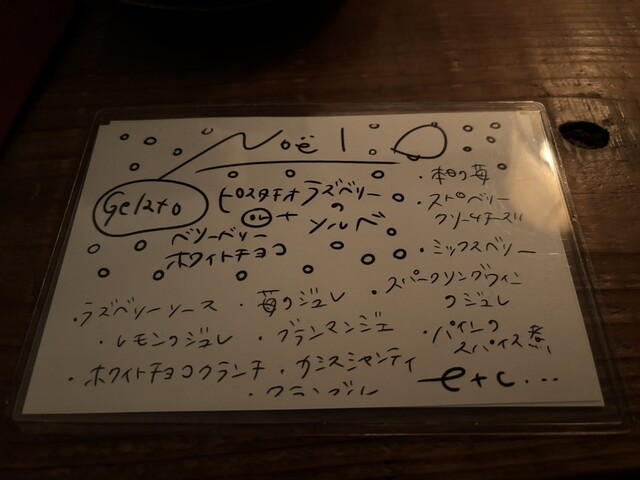 Noël
Gelato
ピスタチオ ラズベリー
or + の
ソルベ
ベリーベリー
ホワイトチョコ
・本日の苺
・ストベリー
クリームチーズ
・ミックスベリー
・スパークリングワイン
のジュレ
・ラズベリーソース ・苺のジュレ
・レモンのジュレ ・ブランマンジェ
・パインの
スパイス煮
・ホワイトチョコクランチ ・カシスシャンティ
・クランブル
etc...